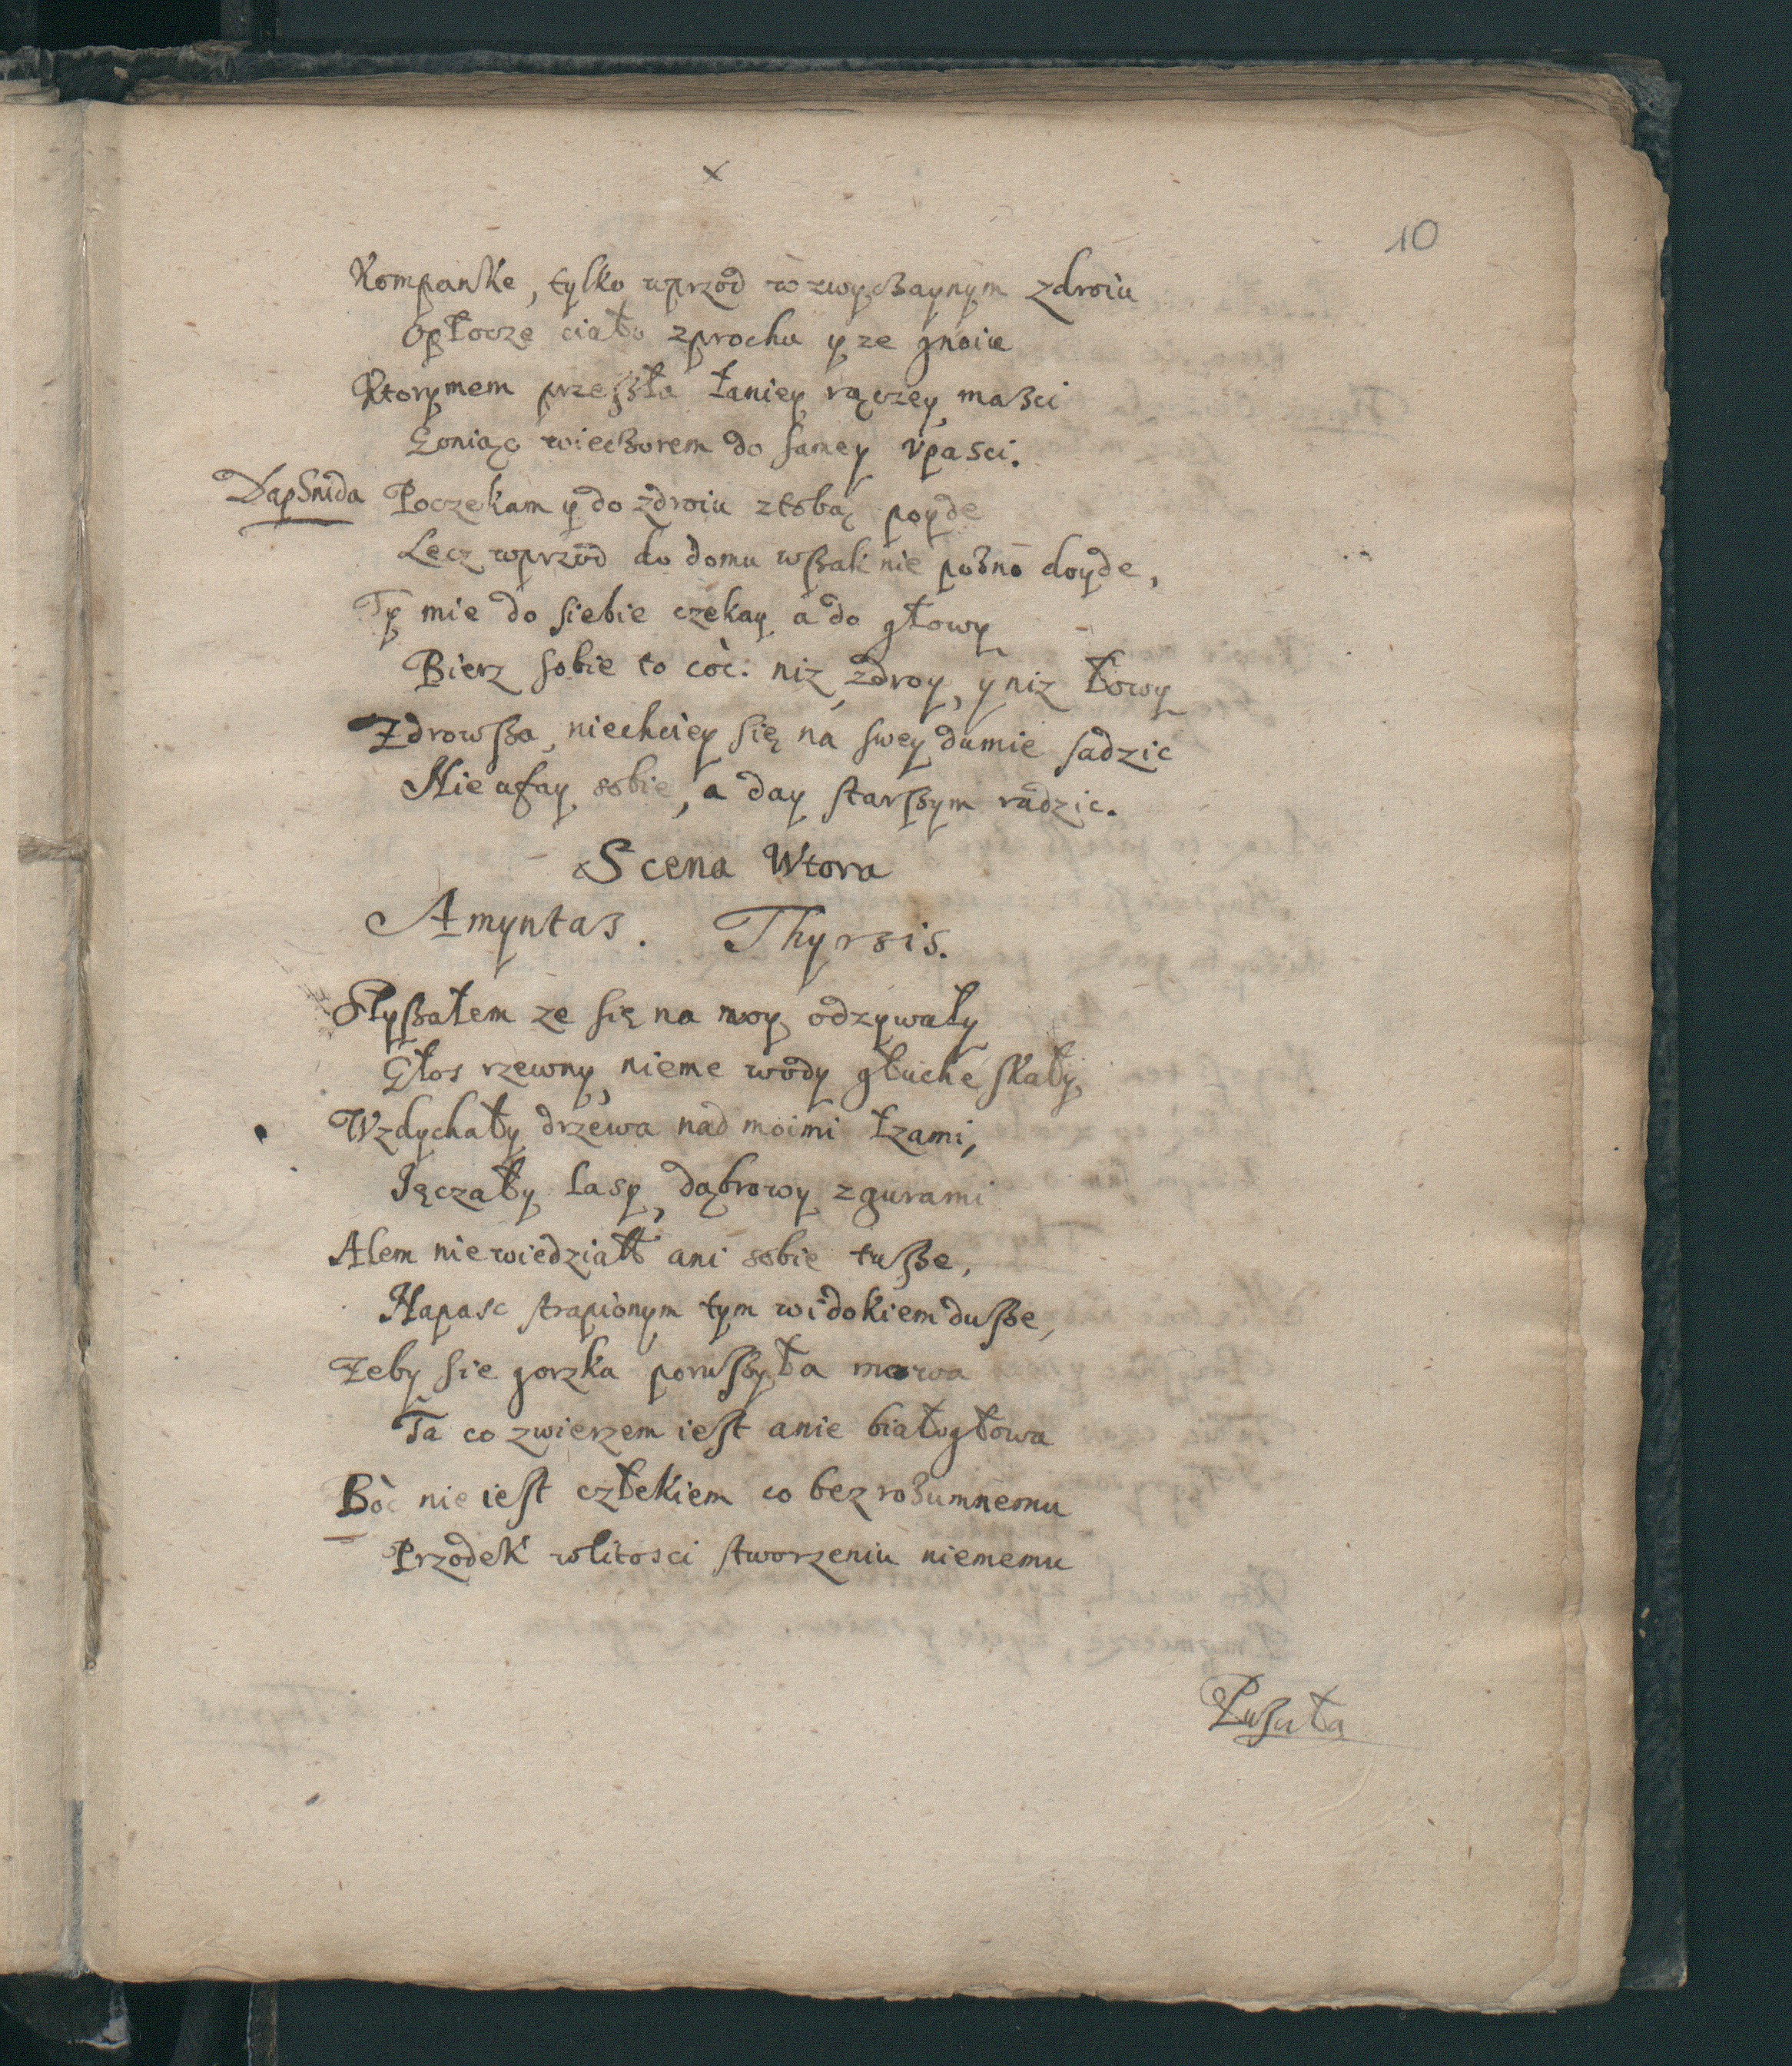 x
10
Kompanke, tylko wprzod w zwyczßaynym zdroiu
Opłocze ciało zprochu y ze gnoiu
Ktorymem przeßła łaniey rączey maßci
Goniąc wieczorem do samey vpasci.
Daphnida Poczekam y do zdroiu ztobą poyde
Lecz wprzod do domu wßak nie pozno doyde,
Ty mie do siebie czekay a do głowy
Bierz sobie to coć. niz zdroy, y niz łowy
Zdrowßa, niechciey się na swey dumie sadzic
Nie ufay sobie, a day starßym radzic.
Scena Wtora
Amyntas. Thyrsis.
Słyßałem ze się na moy odzywały
Głos rzewny, nieme wody głuche skały,
Wzdychały drzewa nad moimi łzami,
Ięczały lasy, dąbrowy zgurami
Alem niewiedział ani sobie tuße,
Napasc strapionym tym widokiem duße,
Zeby sie gorzka porußyła mowa
Ta co zwierzem iest anie białogłowa
Boć nie iest człekiem co bezrozumnemu
Przodek wlitosci stworzeniu niememu
Pußuła